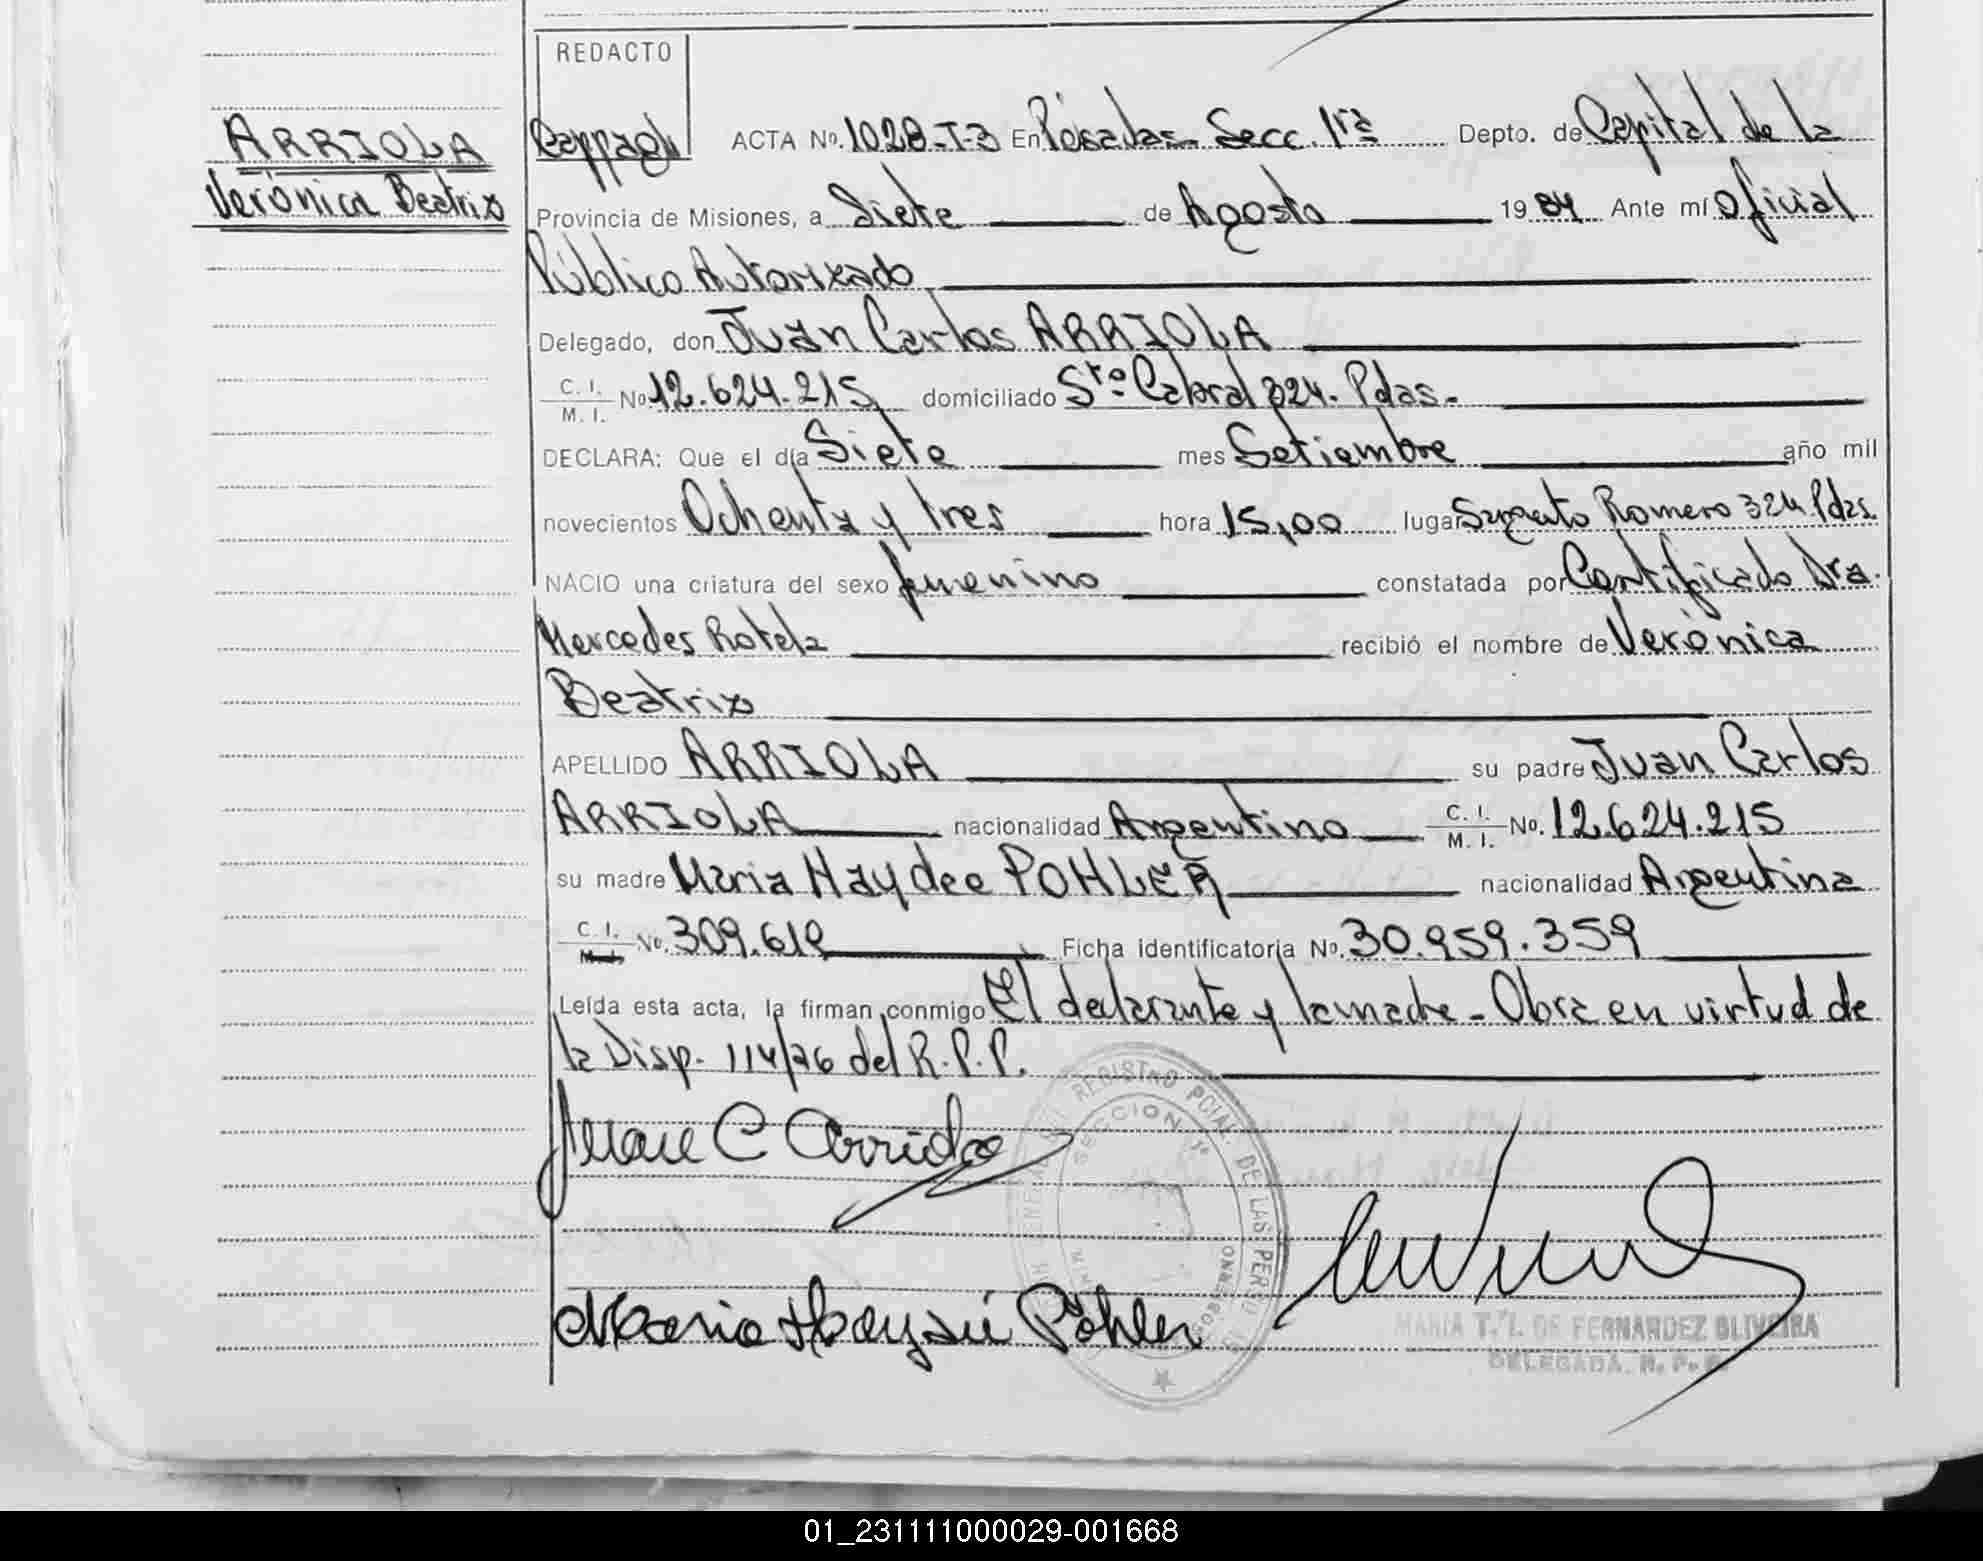 REDACTO
ARRIOLA
Verónica Beatriz
ACTA Nº. 1028-T-3 En Posadas- Secc. 1ra Depto. de Capital de la
Provincia de Misiones, a Siete de Agosto 19 84 Ante mí Oficial
Público Autorizado
Delegado, don Juan Carlos ARRIOLA
C. I. M. I. Nº 12.624.215 domiciliado Sto Cabral 324. Pdas.-
DECLARA: Que el día Siete mes Setiembre año mil
novecientos Ochenta y tres hora 15,00 lugar Sargento Romero 324 Pdas.
NACIO una criatura del sexo femenino constatada por Certificado Dra.
Mercedes Rotela recibió el nombre de Verónica
Beatriz
APELLIDO ARRIOLA su padre Juan Carlos
ARRIOLA nacionalidad Argentino C. I. M. I. Nº. 12.624.215
su madre Maria Haydee POHLER nacionalidad Argentina
C. I. Nº. 309.619 Ficha identificatoria Nº. 30.959.359
Leída esta acta, la firman conmigo El declarante y la madre - Obra en virtud de
la Disp. 114/76 del R.P.P.
Juan C Arriola
Maria Haydeé Pöhler
REGISTRO PCIAL. DE LAS PERSO
SECCION 1ª
GOBIERNO
MARIA T. I. DE FERNANDEZ OLIVEIRA
DELEGADA. R. P. P.
01_231111000029-001668